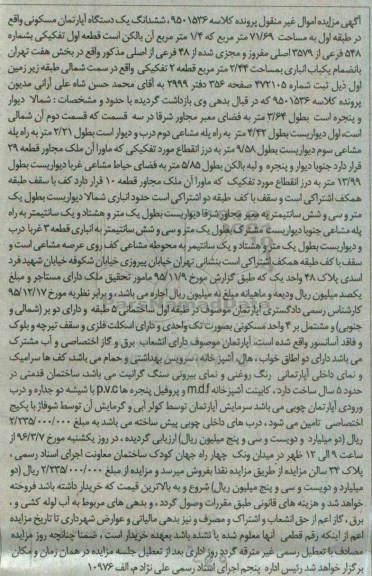 آگهی مزایده اموال غیر منقول پرونده کلاسه ۹۵۰۱۵۳۶، ششدانگ یک دستگاه آپارتمان مسکونی واقع
در طبقه اول به مساحت ۷۱/۶۹ متر مربع که ۱/۴ متر مربع آن بالکن است قطعه اول تفکیکی بشماره
۵۴۸ فرعی از ۳۵۷۹ اصلی مفروز و مجزی شده از ۴۸ فرعی از اصلی مذکور واقع در بخش هفت تهران
بانضمام یکباب انباری بمساحت ۲/۴۴ متر مربع قطعه ۲ تفکیکی واقع در سمت شمالی طبقه زیر زمین
اول ذیل ثبت شماره ۴۷۲۱۰۵ صفحه ۳۵۶ دفتر ۲۹۹۹ به آقای محمد حسن شاه علی آرانی مدیون
پرونده کلاسه ۹۵۰۱۵۳۶ که در قبال بدهی وی بازداشت گردیده با حدود و مشخصات : شمالا دیوار
و پنجره است بطول ۳/۶۴ متر به فضای معبر مجاور شرقا در سه قسمت که قسمت دوم آن شمالی
است، اول دیواریست بطول ۴/۴۲ متر به راه پله مشاعی دوم درب و دیوار است بطول ۲/۲۱ متر به راه پله
مشاعی سوم دیواریست بطول ۹/۵۸ متر به درز انقطاع مورد تفکیکی که ماورا آن ملک مجاور قطعه ۲۹
قرار دارد جنوبا دیوار و پنجره و لبه بالکن بطول ۵/۸۵ متر به فضای حیاط مشاعی غربا دیواریست بطول
۱۳/۹۹ متر به درز انقطاع مورد تفکیک که ماورا آن ملک مجاور قطعه ۱۰ قرار دارد کف با سقف طبقه
همکف اشتراکی است و سقف با کف طبقه دو اشتراکی است حدود انباری شمالا دیواریست بطول یک
متر و سی و شش سانتیمتر به معبر مجاور شرقا دیواریست بطول یک متر و هشتاد و یک سانتیمتر به راه
پله مشاعی جنوبا دیواریست مشترک بطول یک متر و سی و شش سانتیمتر به انباری قطعه ۳ غربا درب
و دیواریست بطول یک متر و هشتاد و یک سانتیمتر به محوطه مشاعی کف روی عرصه مشاعی است و
سقف با کف طبقه همکف اشتراکی است بنشانی تهران خیابان پیروزی خیابان شکوفه خیابان شهید فرد
اسدی پلاک ۴۸ واحد یک که طبق گزارش مورخ ۹۵/۱۱/۹ مامور تحقیق ملک دارای مستاجر و مبلغ
یکصد میلیون ریال ودیعه و ماهیانه مبلغ نه میلیون ریال اجاره می باشد، و برابر نظریه مورخ ۹۵/۱۲/۱۷
کارشناس رسمی دادگستری آپارتمان موصوف در طبقه اول ساختمانی ۵ طبقه و دارای دو بر (شمالی و
جنوبی) و مشتمل بر ۴ واحد مسکونی بصورت تک واحدی و دارای اسکلت فلزی و سقف تیرچه و بلوک
و فاقد آسانسور واقع شده است، آپارتمان موصوف دارای انشعاب برق و گاز اختصاصی و آب مشترک
می باشد دارای دو اطاق خواب، هال، آشپزخانه، سرویس بهداشتی و حمام می باشد، کف ها سرامیک
و نمای داخلی آپارتمانی رنگ روغنی و نمای بیرونی سنگ گرانیت می باشد، ساختمان قدمتی در
حدود ۵ سال ساخت دارد، کابینت آشپزخانه m.d.f و پروفیل پنجره ها p.v.c با شیشه دو جداره و درب
ورودی آپارتمان چوبی می باشد سرمایش آپارتمان توسط کولر آبی و گرمایش آن توسط شوفاژ با پکیج
اختصاصی تامین می شود، درب های داخلی چوبی پیش ساخته می باشد به مبلغ ۲/۲۳۵/۰۰۰/۰۰۰
ریال (دو میلیارد و دویست و سی و پنج میلیون ریال) ارزیابی گردیده، در روز یکشنبه مورخ ۹۶/۳/۷ از
ساعت ۹ الی ۱۲ ظهر در میدان ونک چهار راه جهان کودک ساختمان معاونت اجرای اسناد رسمی،
پلاک ۲۴ سالن مزایده از طریق مزایده نقدا بفروش میرسد و مزایده از مبلغ ۲/۲۳۵/۰۰۰/۰۰۰ ریال (دو
میلیارد و دویست و سی و پنج میلیون ریال) شروع و به بالاترین قیمت که خریدار داشته باشد فروخته
خواهد شد و هزینه های قانونی طبق مقررات وصول گردد، و بدهی های مربوط به آب لوله کشی و
برق، گاز اعم از حق انشعاب و اشتراک و مصرف و نیز بدهی مالیاتی و عوارض شهرداری تا تاریخ مزایده
اعم از اینکه رقم قطعی آنها معلوم شده یا نشده باشد بعهده خریدار است، ضمنا چنانچه روز مزایده
مصادف با تعطیل رسمی غیر مترقبه گردد روز اداری بعد از تعطیل جلسه مزایده در همان زمان و مکان
برگزار خواهد شد رئیس اداره پنجم اجرای اسناد رسمی علی نژاد م. الف ۱۰۹۷۶